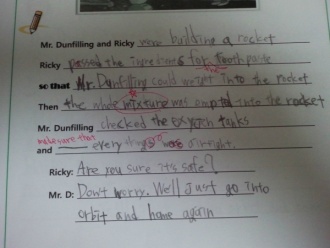 Mr. Dunfilling and Ricky were building a rocket
Ricky passing the ingredients for tooth paste
the
so that Mr. Dunfilling could weight into the rocket
Then the whole mixture was emptid into the rocket
Mr. Dunfilling checked the oxygen tanks
make sure that
and every was alright.
Ricky: Are you sure it's safe?
Mr. D: Don't worry. We'll Just go into
orbit and home again